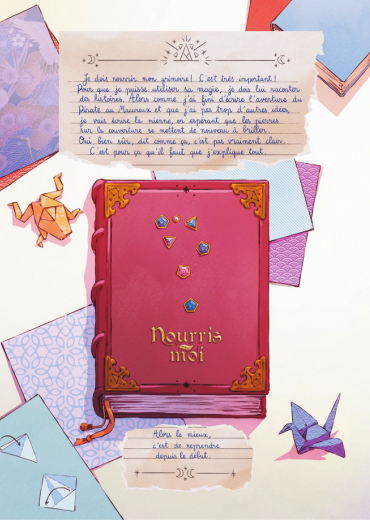 Je dois nourrir mon grimoire! C'est très important!
Pour que je puisse utiliser sa magie, je dois lui raconter
des histoires. Alors comme j'ai fini d'écrire l'aventure du
Pirate au Maureux et que j'ai pas trop d'autres idées,
je vais écrire la mienne, en espérant que les pierres
sur la couverture se mettent de nouveau à briller.
Oui, bien sûr, dit comme ça, c'est pas vraiment clair.
C'est pour ça qu'il faut que j'explique tout.
Nourris
moi
Alors le mieux,
c'est de reprendre
depuis le début.